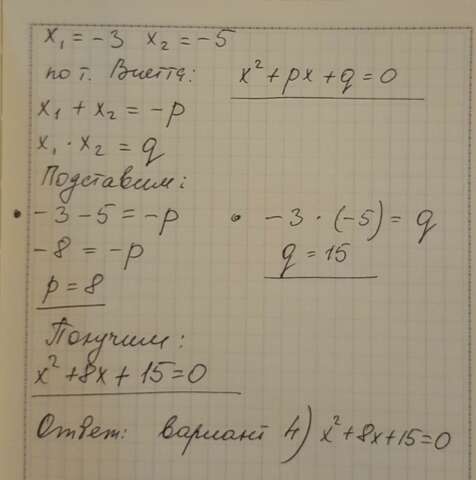 x₁ = -3   x₂ = -5
по т. Виетта:   x² + px + q = 0
x₁ + x₂ = -p
x₁ · x₂ = q
Подставим:
• -3 - 5 = -p   • -3 · (-5) = q
-8 = -p   q = 15
p = 8
Получим:
x² + 8x + 15 = 0
Ответ: вариант 4) x² + 8x + 15 = 0